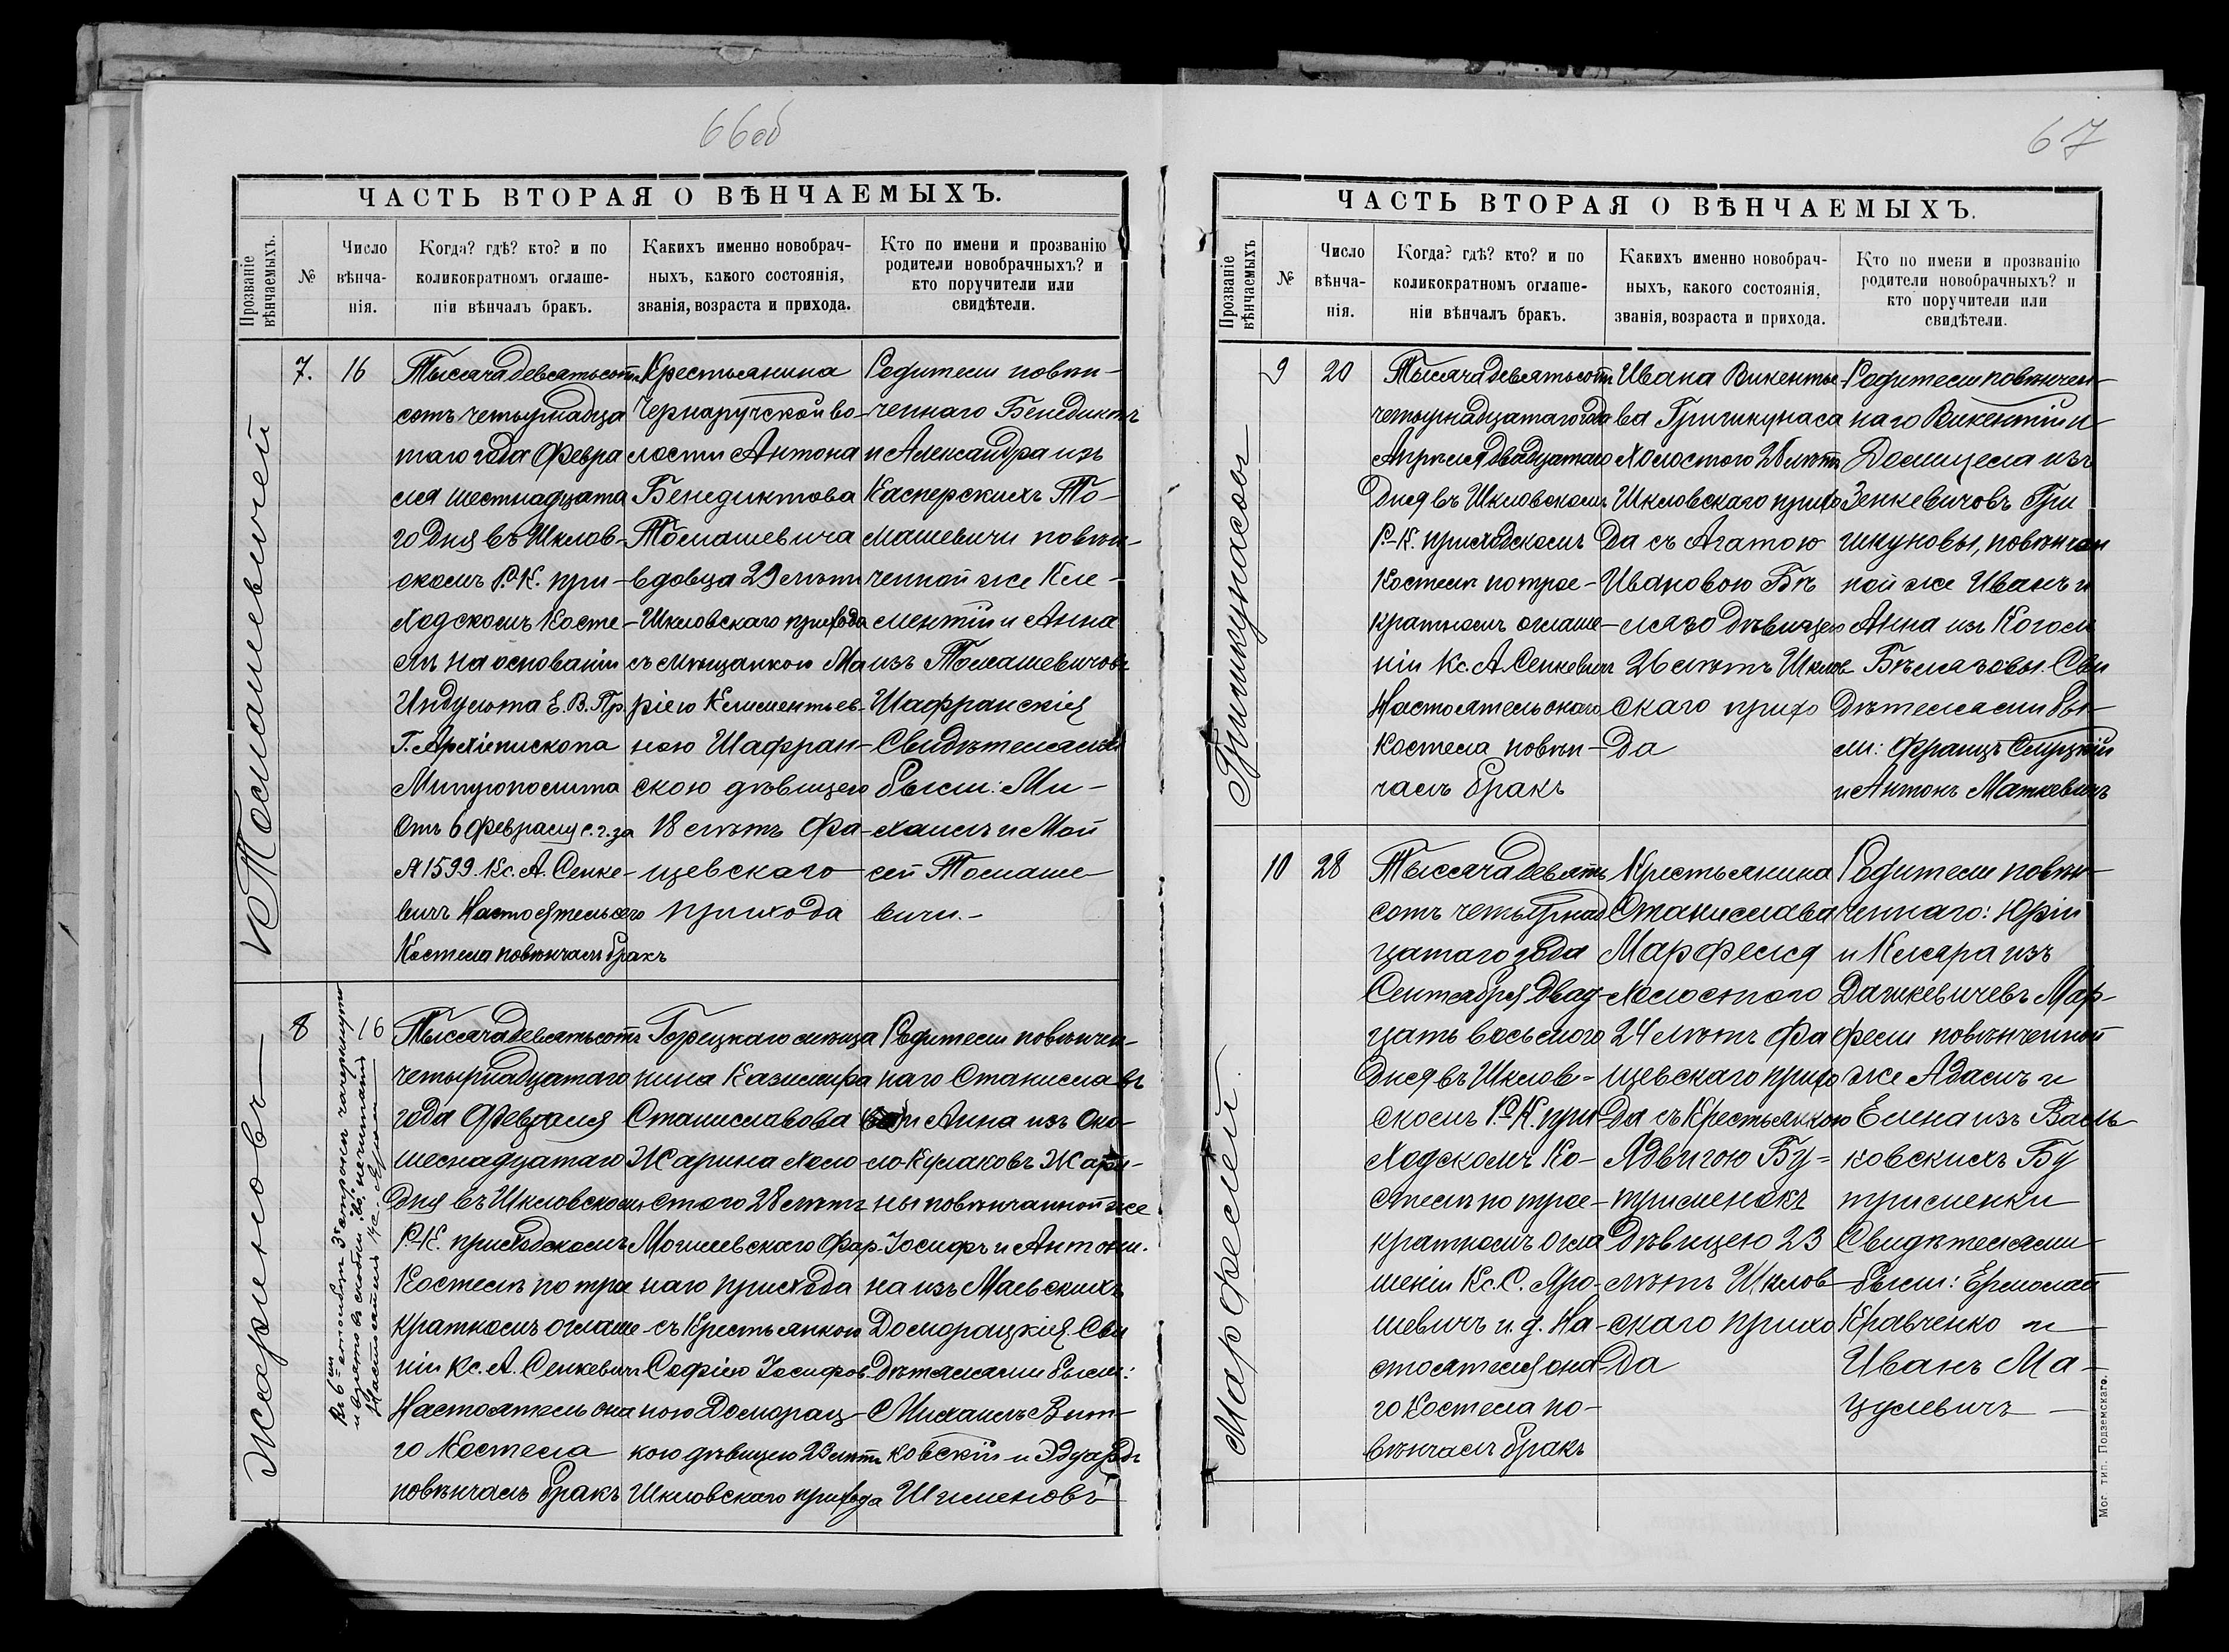 66об
ЧАСТЬ ВТОРАЯ О ВѢНЧАЕМЫХЪ.
Прозваніе
вѣнчаемыхъ.
№
Число
вѣнча-
нія.
Когда? гдѣ? кто? и по
коликократномъ оглаше-
ніи вѣнчалъ бракъ.
Какихъ именно новобрач-
ныхъ, какого состоянія,
званія, возраста и прихода.
Кто по имени и прозванію
родители новобрачныхъ? и
кто поручители или
свидѣтели.
Томашевичей
7.
16
Тысяча девятьсотъ
сотъ четырнадца
таго года Февра
ля шестнадцата
го дня въ Шклов-
скомъ Р.-К. при-
ходскомъ Косте-
лѣ на основаніи
Индульта Е. В. Пр.
Г. Архіепископа
Митрополита
Отъ 6 Февраля с. г. за
№ 1599. Кс. А. Сенке-
вичъ Настоятель сего
Костела повѣнчалъ бракъ
Крестьянина
Черноручской во-
лости Антона
Бенедиктова
Томашевича
вдовца 29 лѣтъ
Шкловскаго прихода
съ мѣщанкою Ма
ріею Клементьев-
ною Шафран-
скою дѣвицею
18 лѣтъ Фа-
щевскаго
прихода
Родители повѣн-
ченнаго Бенедиктъ
и Александра изъ
Касперскихъ То-
машевичи повѣн-
ченной же Кле-
ментій и Анна
изъ Томашевичовъ
Шафранскія
Свидѣтелями
были: Ми-
хаилъ и Мой
сей Томаше
вичи.-
Жариновъ
8
16
Къ 6ой етой стр. 3я строка зачеркнуто
Настоятель Кс. А.
Тысяча девятьсотъ
четырнадцатаго
года Февраля
шеснадцатаго
дня въ Шкловскомъ
Р.-К. приходскомъ
Костелѣ по трое
кратномъ оглаше-
ніи Кс. А. Сенкевичъ
Настоятель она
го Костела
повѣнчалъ бракъ
Горецкаго мѣща
нина Казимира
Станиславова
Жарина холо-
стого 28 лѣтъ
Могилевскаго Фар-
наго прихода
съ Крестьянкою
Софіею Іосифов-
ною Доморац-
кою дѣвицею 23 лѣтъ
Шкловскаго прихода
Родители повѣнчен-
наго Станиславъ
и Анна изъ Око-
ло-Кулаковъ Жари-
ны повѣнчанной же
Іосифъ и Антони-
на изъ Маевскихъ
Доморацкія. Сви
дѣтелями были:
Михаилъ Вит-
ковскій и Эдуардъ
Шименовъ
67
ЧАСТЬ ВТОРАЯ О ВѢНЧАЕМЫХЪ.
Прозваніе
вѣнчаемыхъ
№
Число
вѣнча-
нія.
Когда? гдѣ? кто? и по
коликократномъ оглаше-
ніи вѣнчалъ бракъ.
Какихъ именно новобрач-
ныхъ, какого состоянія,
званія, возраста и прихода.
Кто по имени и прозванію
родители новобрачныхъ? и
кто поручители или
свидѣтели.
Гришкунасовъ
9
20
Тысяча девятьсотъ
четырнадцатаго года
Апрѣля двадцатаго
дня въ Шкловскомъ
Р.-К. приходскомъ
Костелѣ по трое-
кратномъ оглаше-
ніи Кс. А. Сенкевичъ
Настоятель онаго
Костела повѣн-
чалъ бракъ
Ивана Викентье-
ва Гришкунаса
холостого 28 лѣтъ
Шкловскаго прихо
да съ Агатою
Ивановою Бѣ
лязо дѣвицею
26 лѣтъ Шклов
скаго прихо
да
Родители повѣнчен-
наго Викентій и
Домицела изъ
Зенкевичовъ Гри
шкуновы, повѣнчан
ной же Иванъ и
Анна изъ Когом
Бѣлязовы. Сви
дѣтелями бы-
ли: Францъ Слуцкій
и Антонъ Маткевичъ
Марфелей.
10
28
Тысяча девять
сотъ четырнад
цатаго года
Сентября двад-
цать восьмого
дня въ Шклов-
скомъ Р.-К. при
ходскомъ Ко-
стелѣ по трое-
кратномъ огла
шеніи Кс. С. Яро-
шевичъ и. д. На-
стоятеля она-
го Костела по-
вѣнчалъ бракъ
Крестьянина
Станислава
Марфеля
холостого
24 лѣтъ Фа
щевскаго прихо
да съ Крестьянкою
Ядвигою Бу-
трименокъ
Дѣвицею 23
лѣтъ Шклов-
скаго прихо
да
Родители повѣн-
ченнаго: Юрій
и Клара изъ
Дашкевичевъ Мар-
фели повѣнченной
же Адамъ и
Елена изъ Вась-
ковскихъ Бу
трименки
Свидѣтелями
были: Ермолай
Кравченко и
Иванъ Ма-
цулевичъ
Мог. тип. Подземскаго.